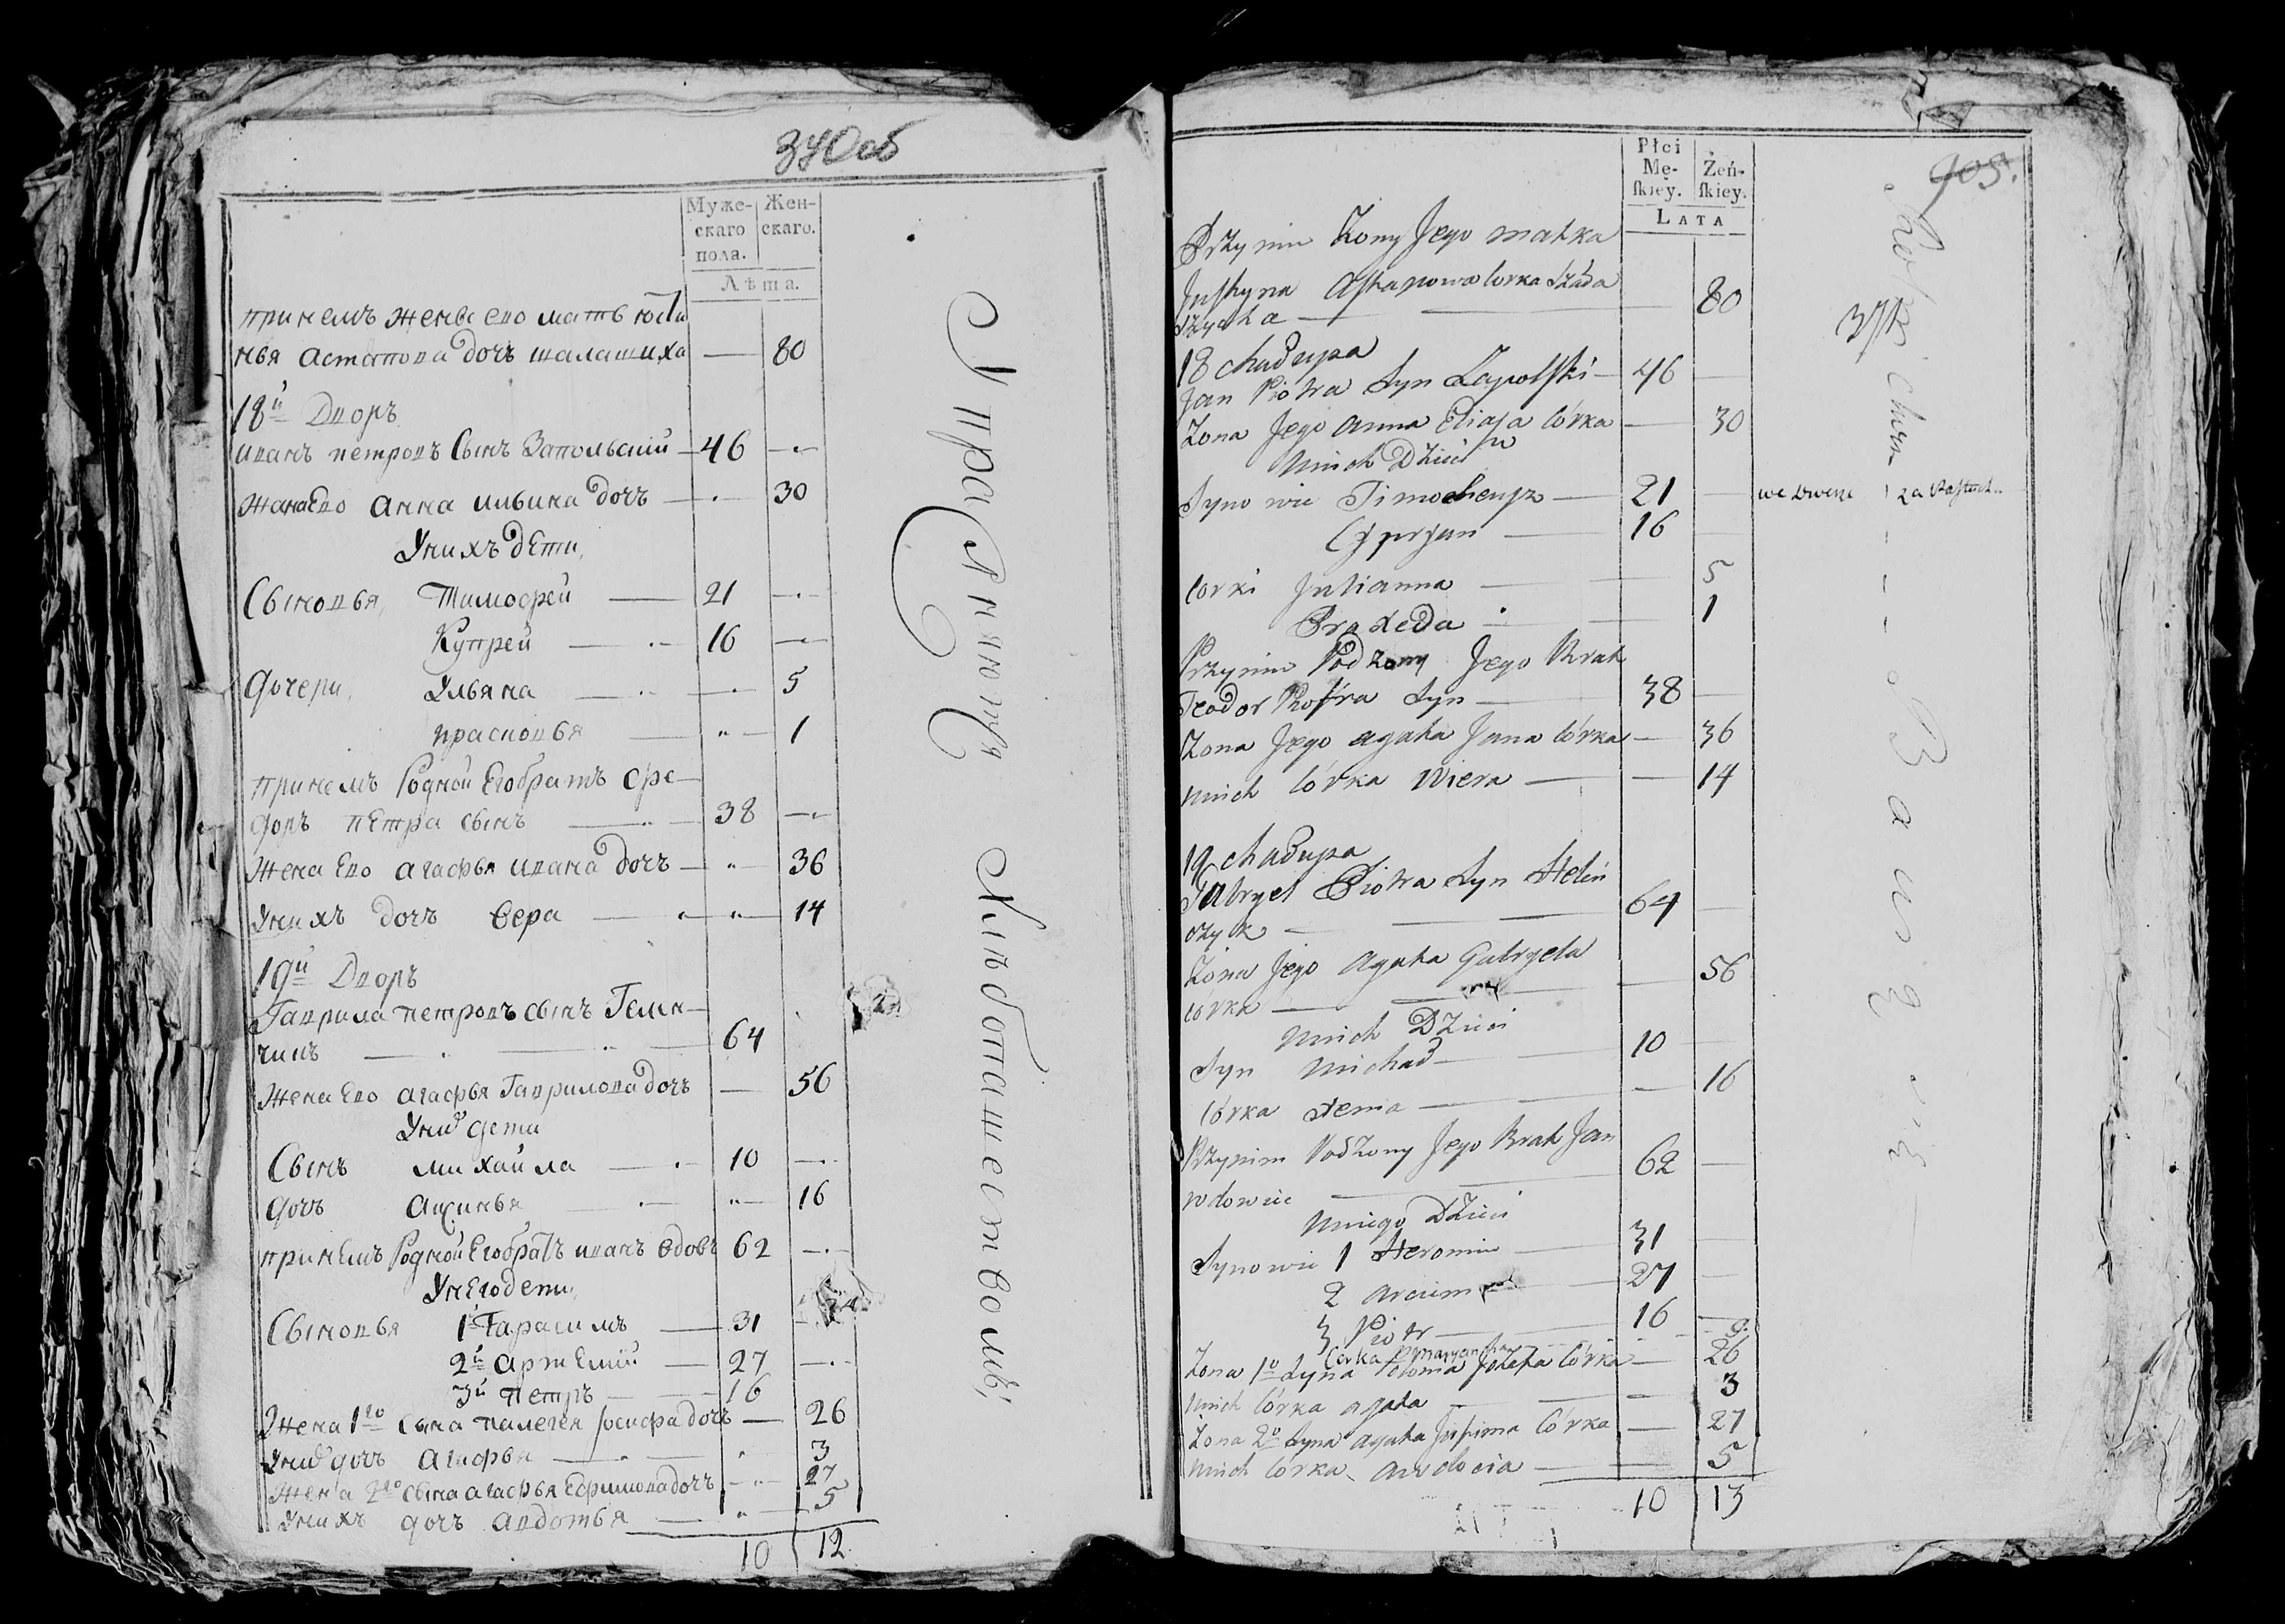 340об
Муже-
скаго
пола.
Жен-
скаго.
Лѣта.
принемъ жены ево мать юсти
нья астапова дочъ шалашиха — 80
18й Дворъ
иванъ петровъ Сынъ Запольский — 46
жена ево анна ильина дочъ — 30
Унихъ дети
Сыновья, Тимофей — 21
Купрей — 16
дочери, Ульяна — 5
прасковья — 1
принемъ Родной Егобратъ фе-
доръ петра сынъ — 38
жена Ево агафья ивана дочъ — 36
Унихъ дочъ вера — 14
19й Дворъ
Гаврила петровъ сынъ Гелен-
чикъ — 64
жена Ево агафья Гаврилова дочъ — 56
Уних дети
Сынъ михайла — 10
дочъ аксинья — 16
принемъ Родной Егобратъ иванъ вдовъ 62
Унегодети,
Сыновья 1й Гарасимъ — 31
2й артемий — 27
3й петръ — 16
Жена 1го сына палегея Iосифа дочъ — 26
Уних дочъ агафья — 3
жена 2го сына агафья Ефимова дочъ — 27
Унихъ дочъ авдотья — 5
10 12
405.
Płci
Mę-
skiey.
Żeń-
skiey.
LATA
Przy nim Żony Jego matka
Justyna Astapowa Corka Szała
szycha — 80
18 chałupa
Jan Piotra Syn Zapolski — 46
Żona Jego Anna Eliasza Córka — 30
Unich Dzieci
Synowie Timocheusz — 21
Cypryan — 16
Corki Julianna — 5
Praxeda — 1
Przynim Rodzony Jego Brat
Teodor Piotra Syn — 38
Żona Jego Agata Jana Córka — 36
Unich Córka Wiera — 14
19 chałupa
Gabryel Piotra Syn Helen
czyk — 64
Żona Jego Agata Gabryela
corka — 56
Unich Dzieci
Syn Michał — 10
Córka Xenia — 16
Przynim Rodzony Jego Brat Jan
wdowiec — 62
Uniego Dzieci
Synowie 1 Heronim — 31
2 Arcium — 27
3 Piotr — 16
Córka Maryanna — 9
Żona 1o Syna Pelonia Jozefa Córka — 26
Unich Córka Agata — 3
Żona 2o Syna Agata Jufima Córka — 27
Unich Córka Awdocia — 5
10 13